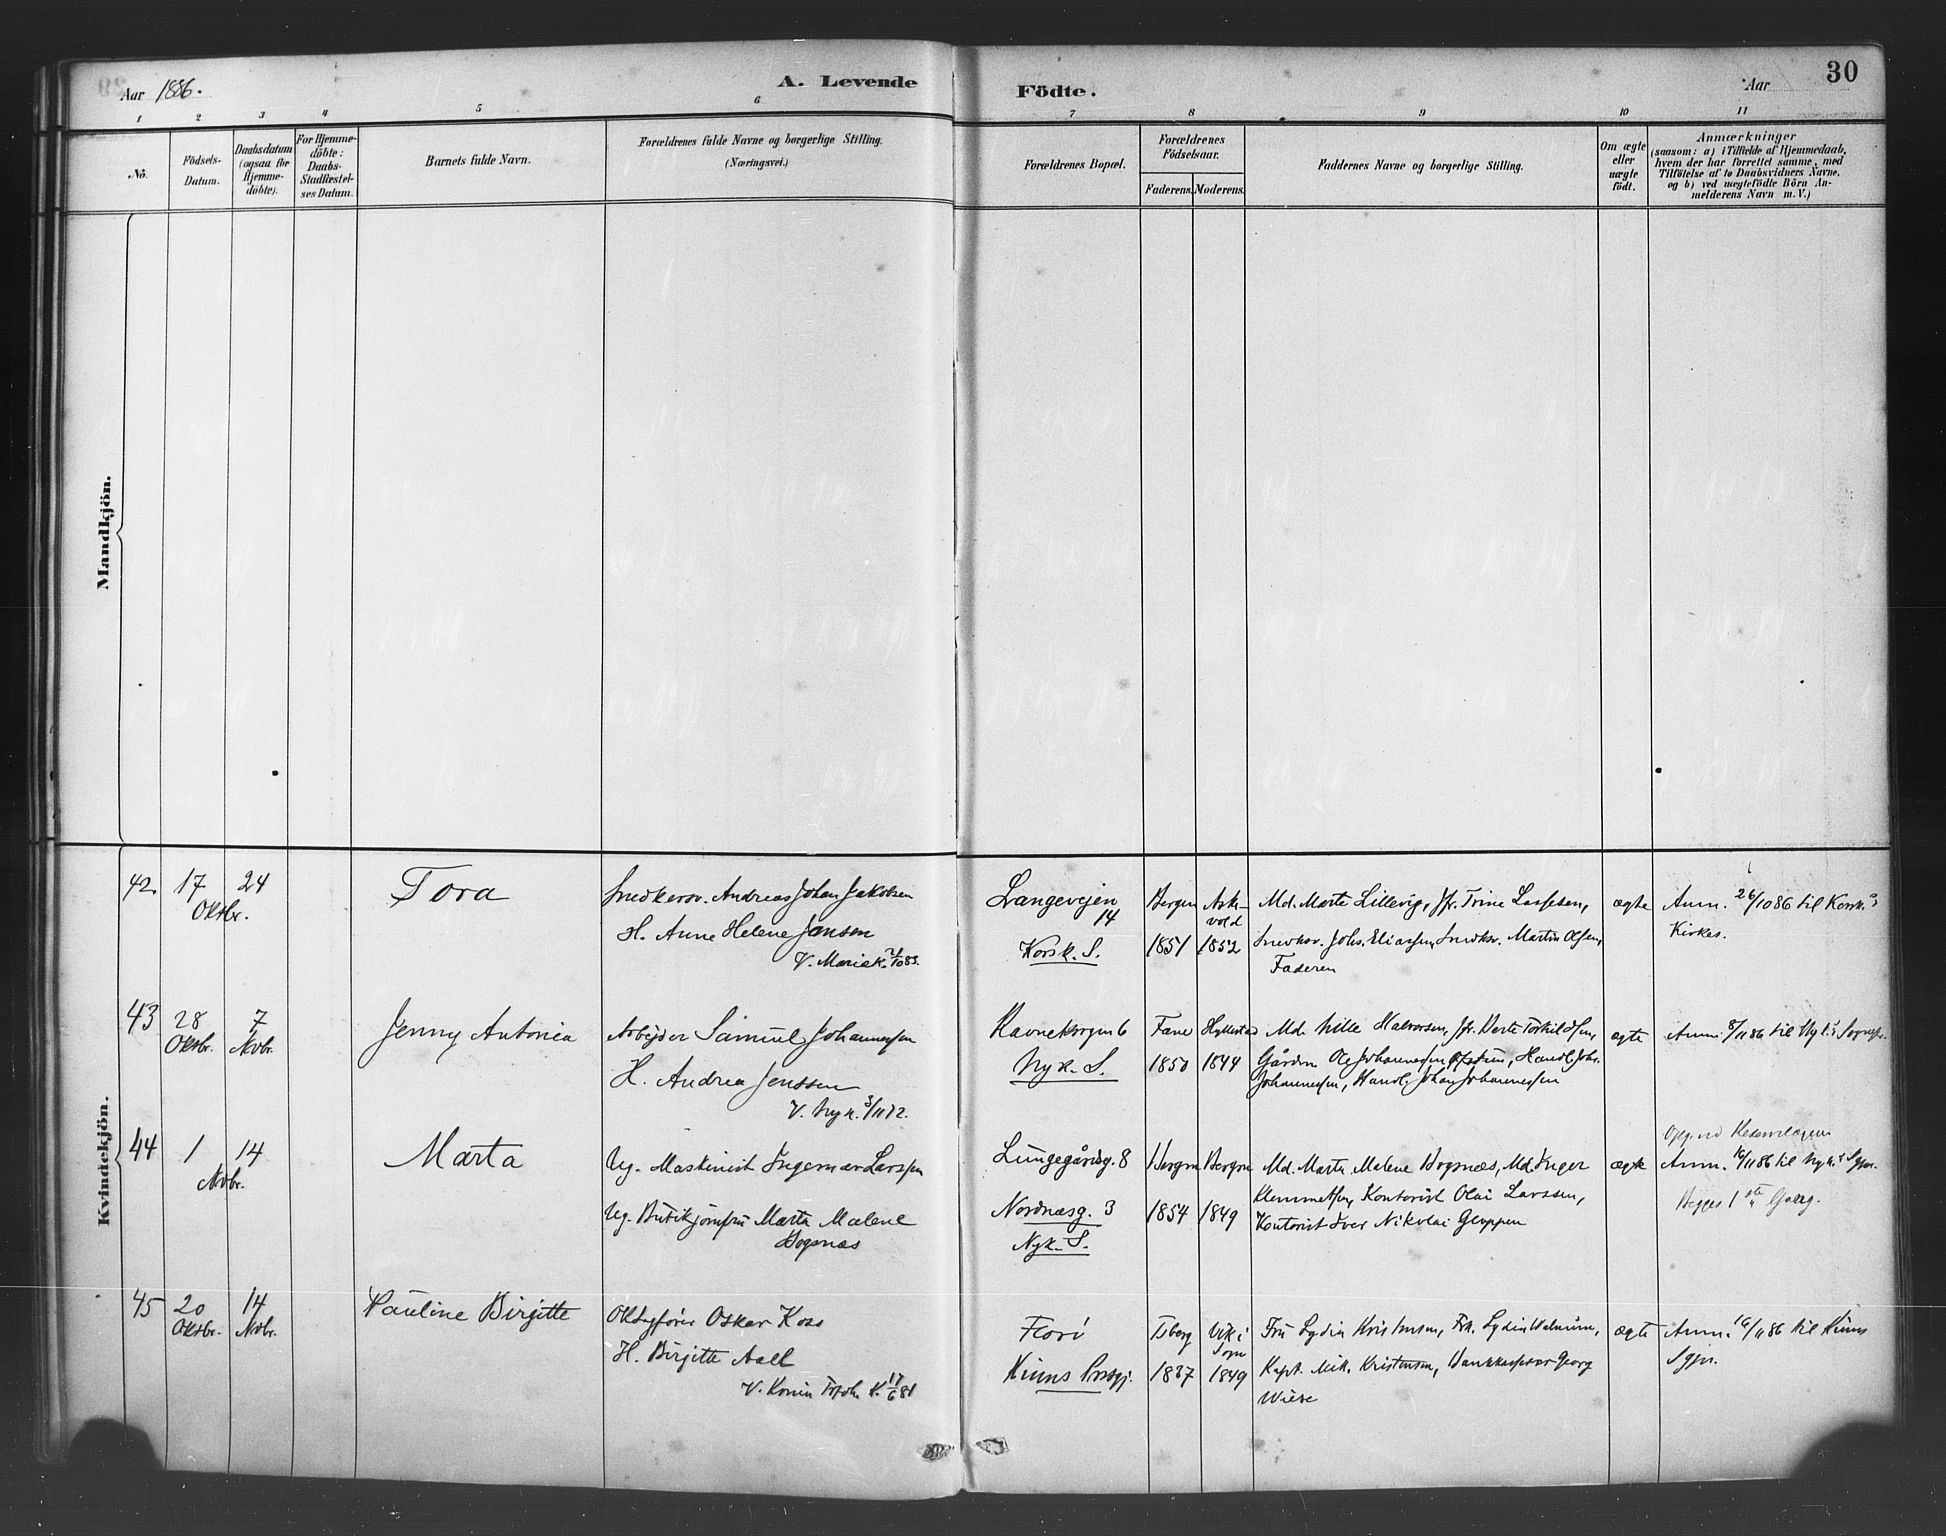 Aar 1886.
A. Levende
Födte.
Aar
30
1 2 3 4 5 6 7 8 9 10 11
No.
Födsels-
Datum.
Daabsdatum
(ogsaa for
Hjemme-
döbte).
For Hjemme-
döbte:
Daabs-
Stadfæstel-
ses Datum.
Barnets fulde Navn.
Forældrenes fulde Navne og borgerlige Stilling.
(Næringsvei.)
Forældrenes Bopæl.
Forældrenes
Födselsaar.
Faderens.
Moderens.
Faddernes Navne og borgerlige Stilling.
Om ægte
eller
uægte
födt.
Anmærkninger
(saasom: a) i Tilfælde af Hjemmedaab,
hvem der har forrettet samme, med
Tilföielse af to Daabsvidners Navne,
og b) ved uægtefödte Börn An-
melderens Navn m. V.)
Mandkjön.
Kvindekjön.
42. 17 24
Oktbr.
Tora
Snedkersv. Andreas Johan Jakobsen
H. Anne Helene Jansen
V. Mariek. 21/10 83.
Langevejen
14
Korsk. S.
Bergen
1851
Ask-
vold
1852
Md. Marta Lillevig, Jfr. Trine Larssen,
Snedksv. Johs. Eliassen, Snedksv. Martin Olsen,
Faderen
ægte
Anm. 26/10 86 til Korsk.s
Kirkes.
43 28 7
Oktbr. Nvbr.
Jenny Antonia
Arbejder Samuel Johannessen
H. Andrea Jenssen
V. Nyk. 3/11 72.
Ravnekrogen 6
Nyk. S.
Fane
1850
Hyllestad
1844
Md. Lille Halvorsen, Jfr. Berte Torkildsen,
Gårdm. Ole Johannessen, Handl. Johs.
Johannessen, Handl. Johan Johannessen
ægte
Anm. 8/11 86 til Nyk.s Sognepr.
44 1 14
Nvbr.
Marta
Ug. Maskinist Ingemar Larssen
Ug. Butikjomfru Marta Malene
Bogsnæs
Lungegårdsg. 8
Nordnæsg. 3
Nyk. S.
Bergen
1854
Bergen
1849
Md. Marta Malene Bogsnæs, Md. Inger
Klemmetsen, Kontorist Olai Larssen,
Kontorist Iver Nikolai Gloppen
ægte
Anm. 16/11 86 til Nyk.s Sgpr.
Begges 1ste Gang.
45 20 14
Oktbr. Nvbr.
Pauline Birgitte
Oskar Koss
H. Birgitte Aall
V. K. 17/6 81
Florö
Kinns Prstgj.
Tsberg
1837
Vik i
Sogn
1849
Fru Lydia Kristensen, Frk. Lydia Walnum,
Kapt. Mik. Kristensen, Bankkasserer Georg
Wiese
ægte
Anm. 16/11 86 til Kinns
Sgpr.